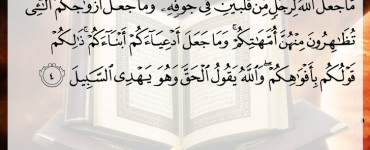 مَّا جَعَلَ ٱللَّهُ لِرَجُلٍ مِّن قَلْبَيْنِ فِى جَوْفِهِۦ ۚ وَمَا جَعَلَ أَزْوَٰجَكُمُ ٱلَّٰٓـِٔى
تُظَٰهِرُونَ مِنْهُنَّ أُمَّهَٰتِكُمْ ۚ وَمَا جَعَلَ أَدْعِيَآءَكُمْ أَبْنَآءَكُمْ ۚ ذَٰلِكُمْ
قَوْلُكُم بِأَفْوَٰهِكُمْ ۖ وَٱللَّهُ يَقُولُ ٱلْحَقَّ وَهُوَ يَهْدِى ٱلسَّبِيلَ ٤